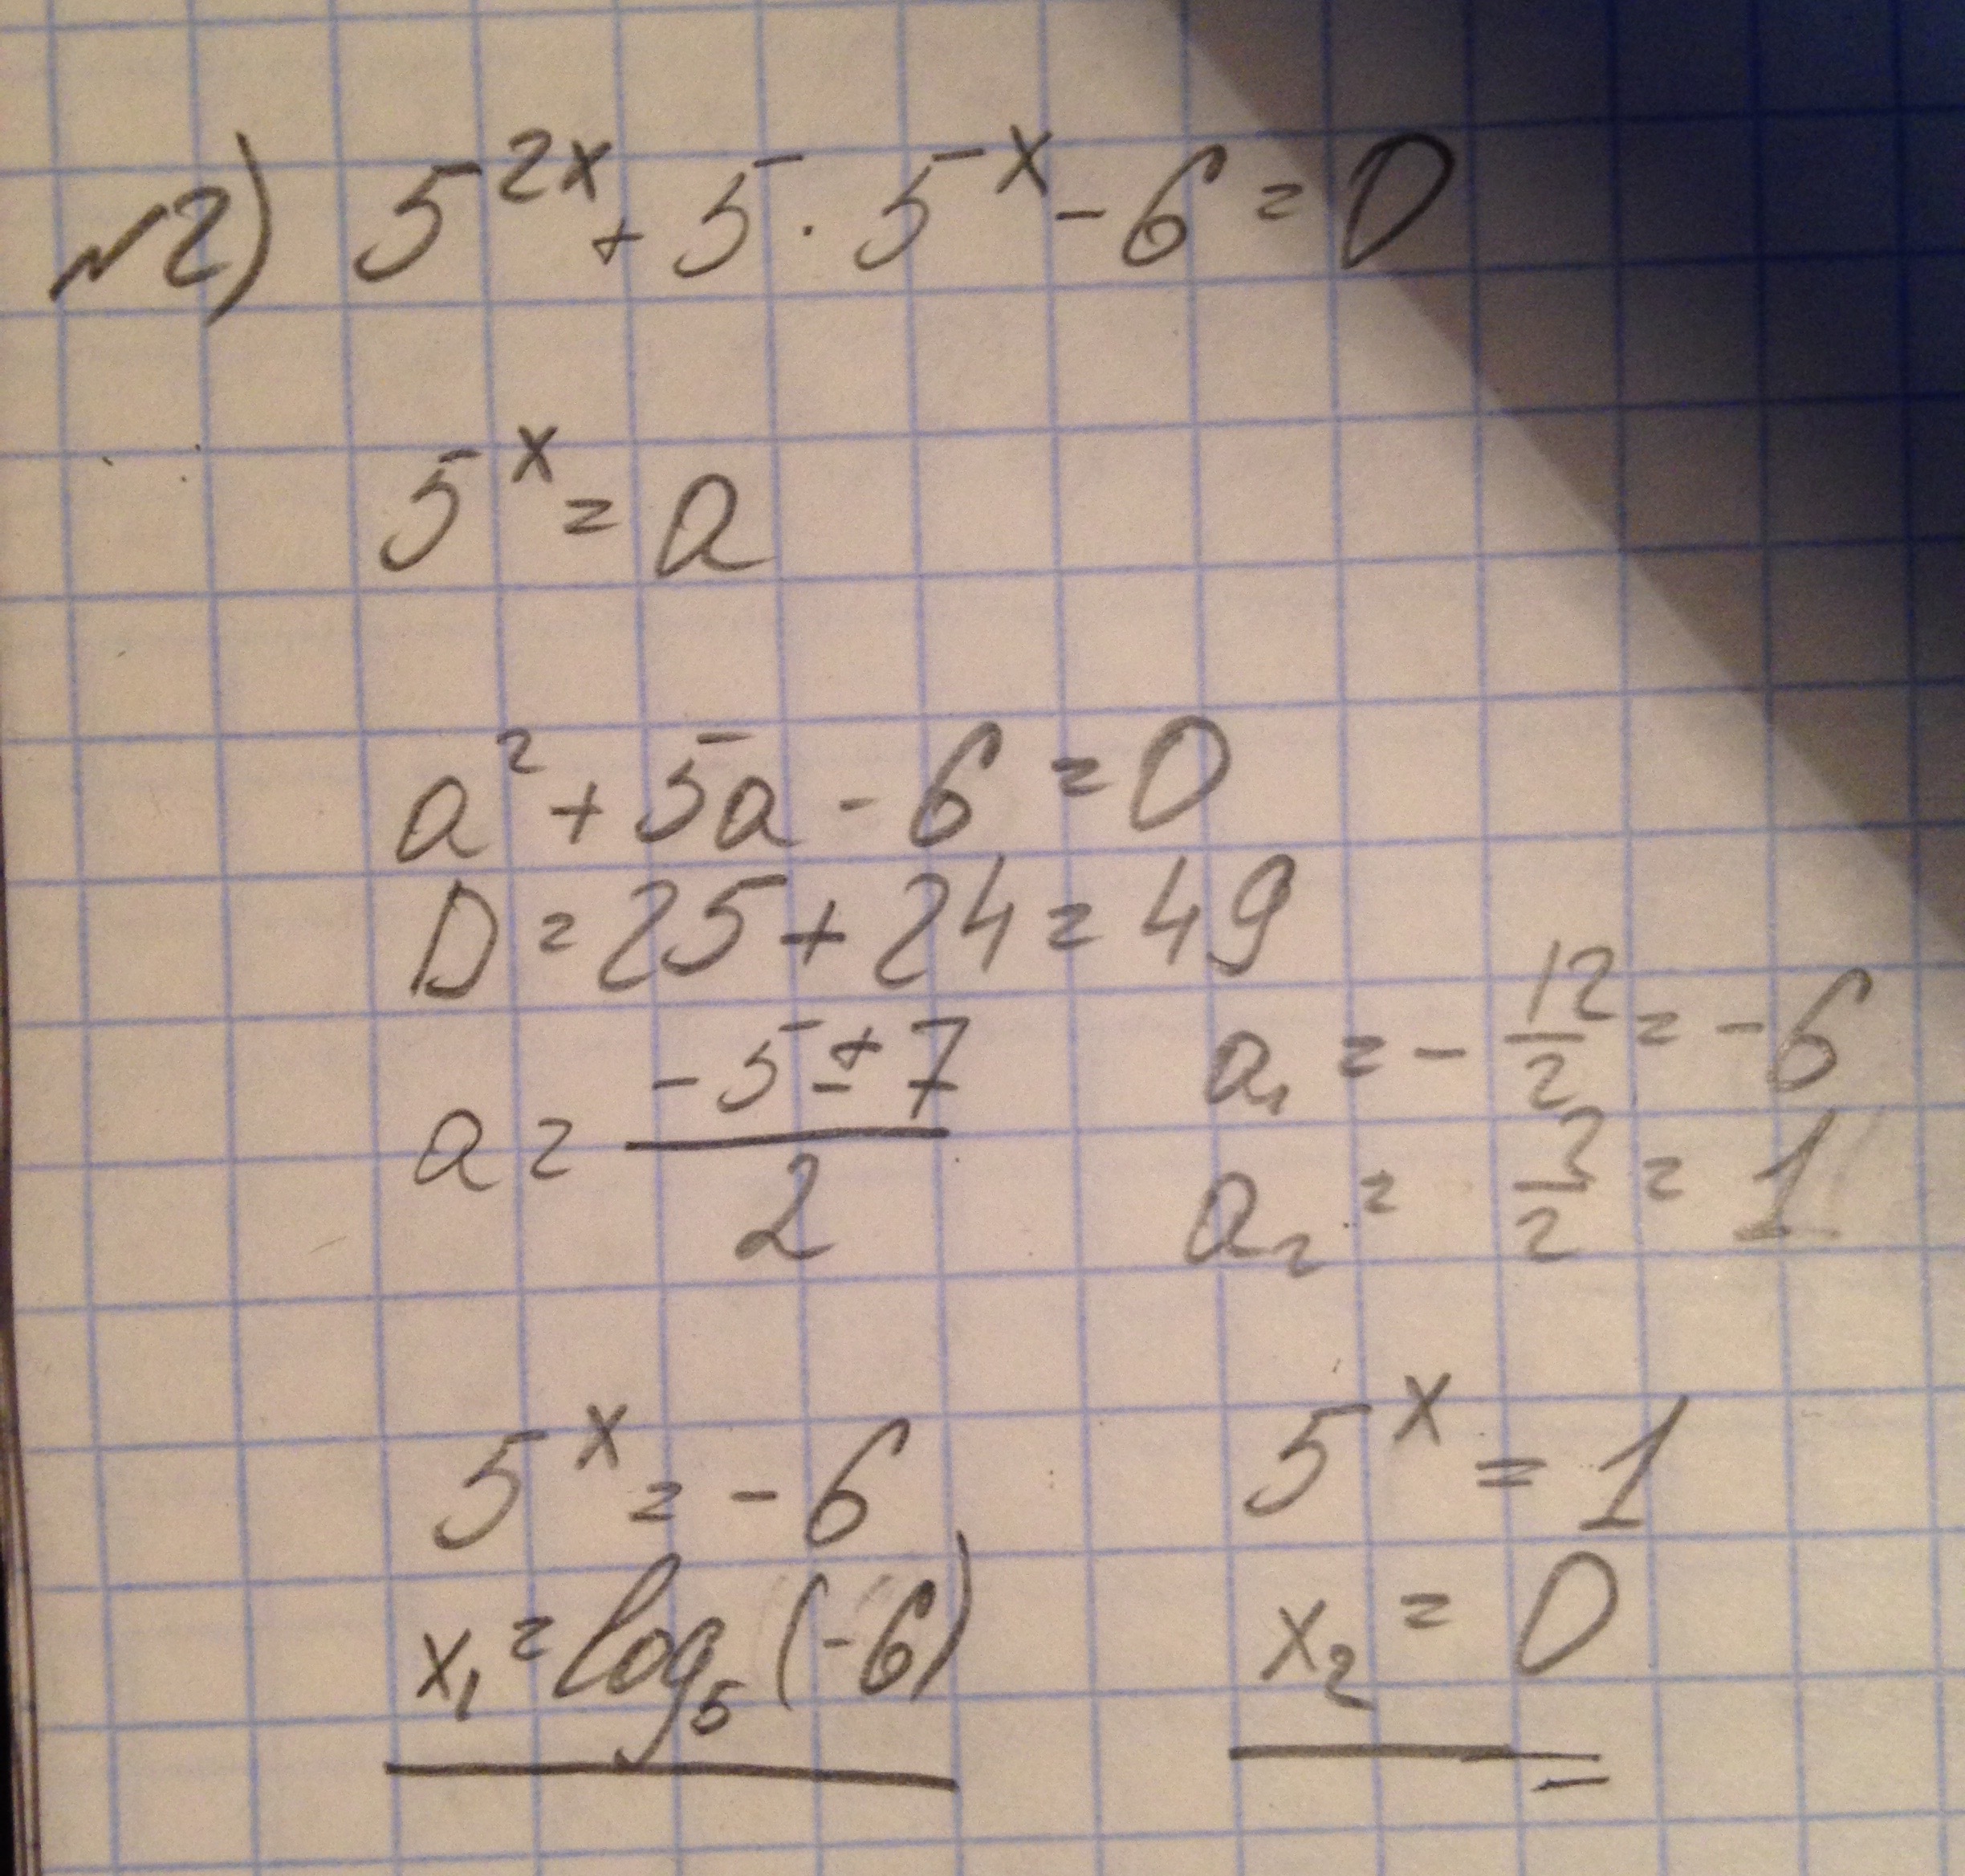 №2) 5^{2x} + 5 · 5^x - 6 = 0
5^x = a
a² + 5a - 6 = 0
D = 25 + 24 = 49
a = \frac{-5 ± 7}{2}
a₁ = - \frac{12}{2} = -6
a₂ = \frac{2}{2} = 1
5^x = -6
x₁ = log₅(-6)
5^x = 1
x₂ = 0